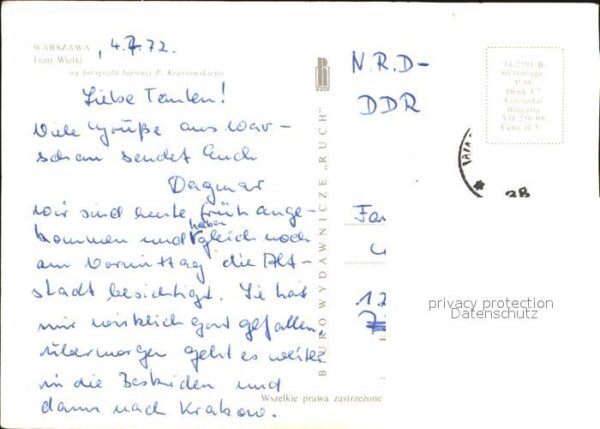 WARSZAWA
Teatr Wielki
wg fotografii barwnej P. Krassowskiego
, 4.7.72.
Liebe Tanten!
Viele Grüße aus War-
schau sendet Euch
Dagmar
Wir sind heute früh ange-
kommen und haben gleich noch
am Vormittag die Alt-
stadt besichtigt. Sie hat
mir wirklich gut gefallen.
Übermorgen geht es weiter
in die Beskiden und
dann nach Krakow.
BIURO WYDAWNICZE „RUCH"
Wszelkie prawa zastrzeżone
N.R.D-
DDR
Druk
Bułgaria
Cena zł
Fa
12
privacy protection
Datenschutz